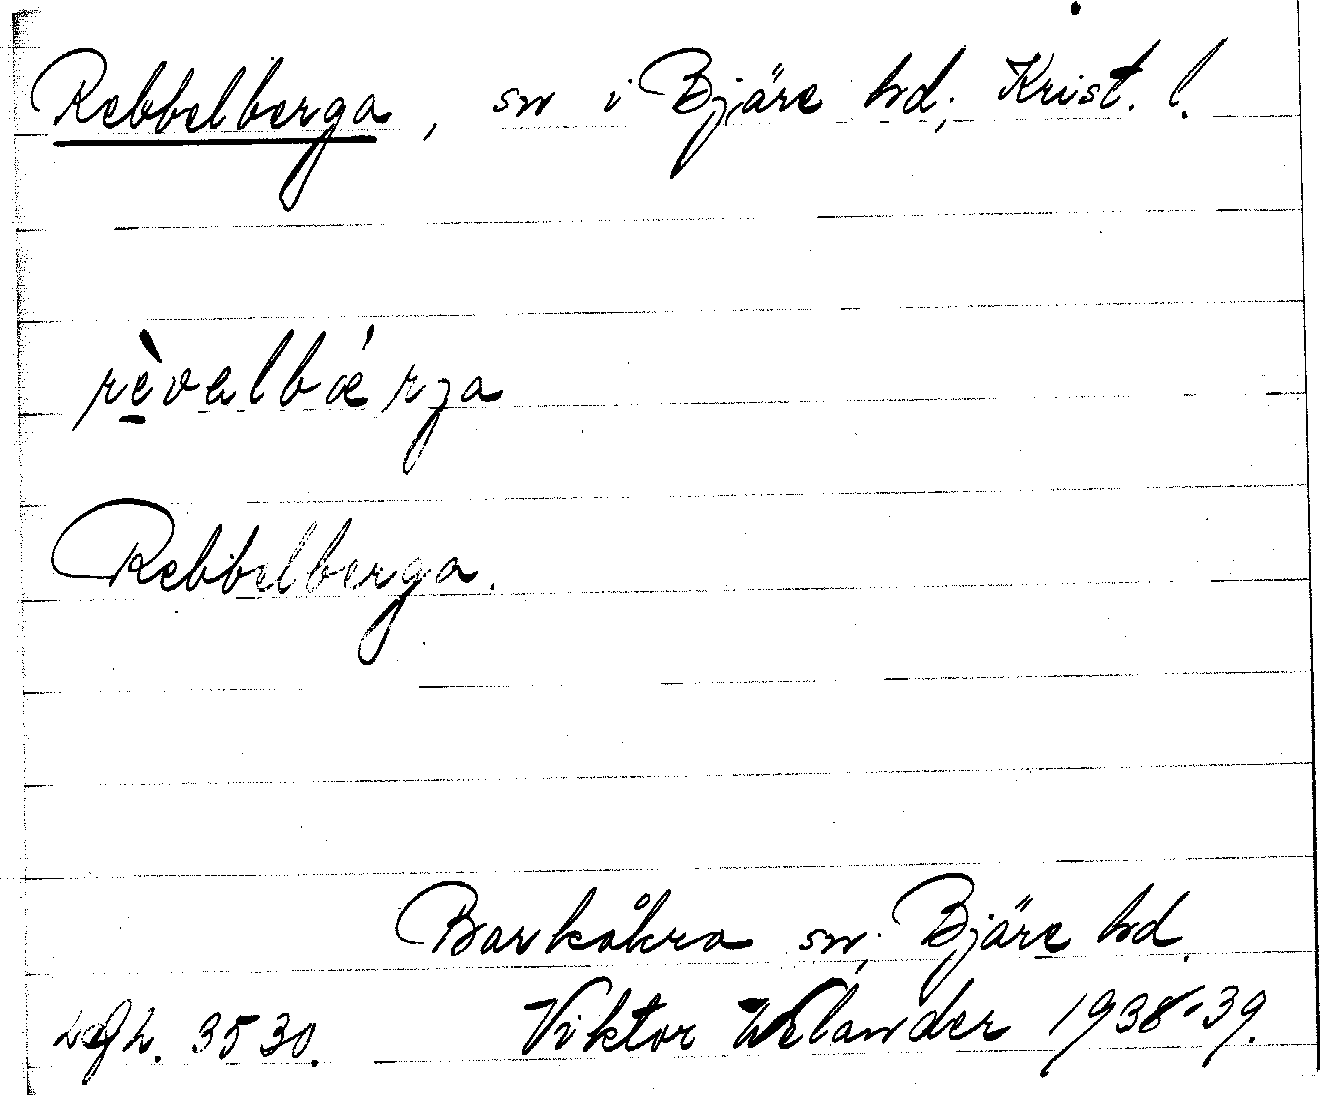 Rebbelberga, sn i Bjäre hd, Krist. l.
rèvalbǽrga
Rebbelberga.
Barkåkra sn, Bjäre hd.
3530. Viktor Welander 1938-39.